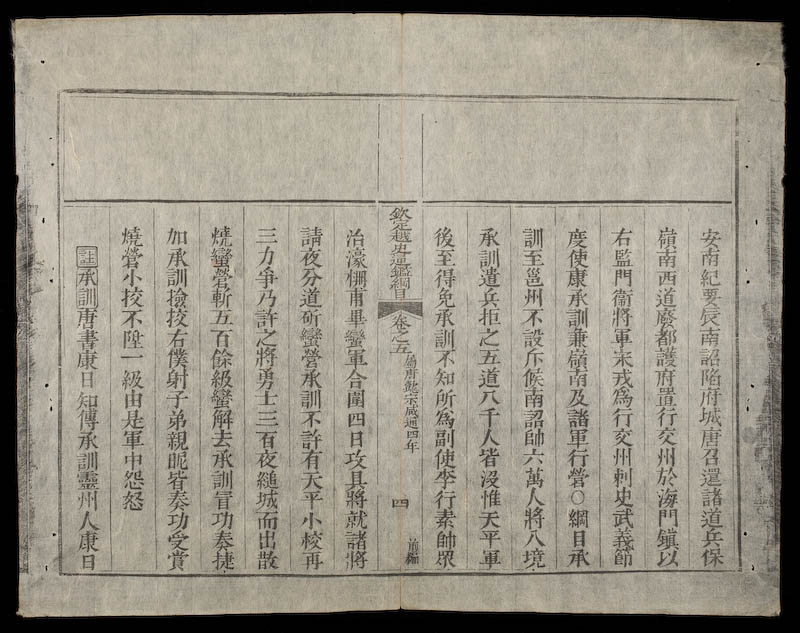 安南紀要辰南詔陷府城唐召還諸道兵保
嶺南西道廢都護府置行交州於海門鎮以
右監門衞將軍宋戎爲行交州刺史武義節
度使康承訓兼嶺南及諸軍行營○綱目承
訓至邕州不設斥候南詔帥六萬人將入境
承訓遣兵拒之五道八千人皆沒惟天平軍
後至得免承訓不知所爲副使李行素帥眾
欽定越史通鑑綱目 卷之五 屬唐懿宗咸通四年 四 前編
治濠柵甫畢蠻軍合圍四日攻具將就諸將
請夜分道斫蠻營承訓不許有天平小校再
三力爭乃許之將勇士三百夜縋城而出散
燒蠻營斬五百餘級蠻解去承訓冒功奏捷
加承訓撿挍右僕射子弟親昵皆奏功受賞
燒營小挍不陞一級由是軍中怨怒
註承訓唐書康日知傳承訓靈州人康日